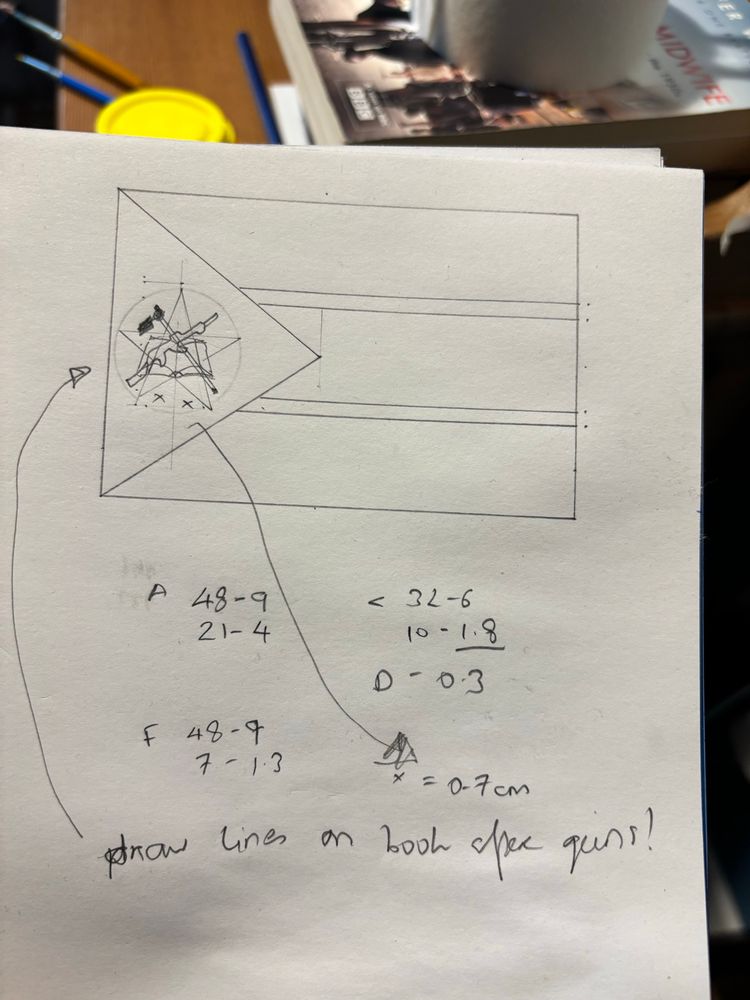 MIDWIFE
BBC
x x
A 48-9
21-4
< 32-6
10-1.8
D - 0.3
F 48-9
7-1.3
x = 0.7cm
draw lines on book after guns!